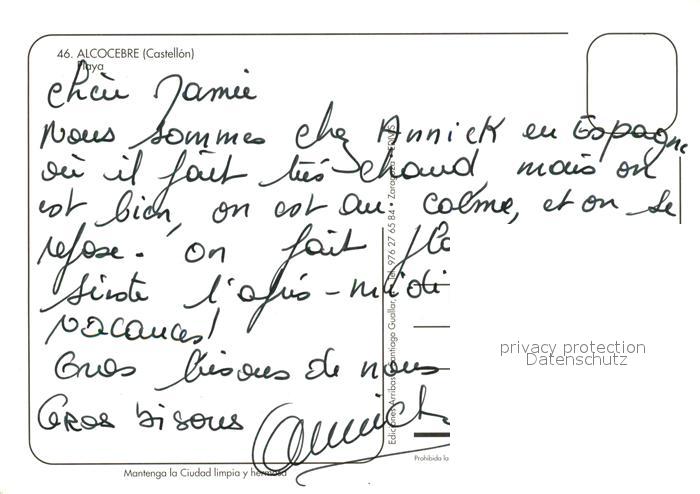 46. ALCOCEBRE (Castellón)
Playa
Chère Jamie
Nous sommes chez Annick en Espagne
où il fait très chaud, mais on
est bien, on est au calme, et on se
repose. on fait
sieste l'après-midi
vacances!
Gros bisous de nous
Gros bisous
Annick
Ediciones Arribas • Santiago Guallar, • Tel. 976 27 65 84 • Zaragoza
Mantenga la Ciudad limpia y hermosa
Prohibida la
privacy protection
Datenschutz